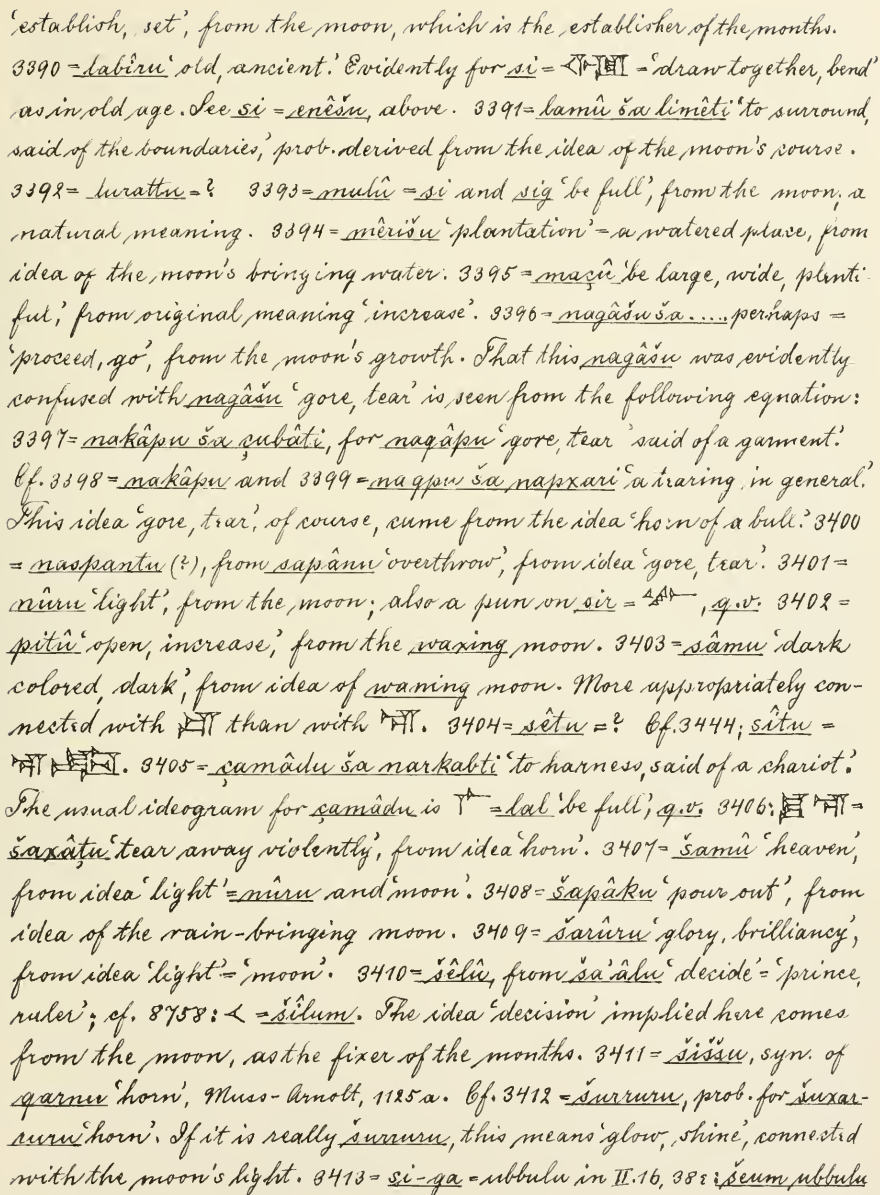 'establish, set', from the moon, which is the establisher of the months.
3390 = labîru 'old, ancient.' Evidently for si = = 'draw together, bend'
as in old age. See si = enêšu, above. 3391 = lamû ša limêti 'to surround,
said of the boundaries,' prob. derived from the idea of the moon's course.
3392 = lurattu = ? 3393 = mulû = si and sig 'be full', from the moon; a
natural meaning. 3394 = mêrišu 'plantation' = a watered place, from
idea of the moon's bringing water. 3395 = maçû 'be large, wide, plenti-
ful,' from original meaning 'increase'. 3396 = nagâšu ša ..... perhaps =
'proceed, go', from the moon's growth. That this nagâšu was evidently
confused with nagâšu 'gore, tear' is seen from the following equation:
3397 = nakâpu ša çubâti, for nagâpu 'gore, tear' said of a garment.'
Cf. 3398 = nakâpu and 3399 = nagpu ša napxari 'a tearing in general.'
This idea 'gore, tear', of course, came from the idea 'horn of a bull.' 3400
= naspantu (?), from sapânu 'overthrow', from idea 'gore, tear'. 3401 =
nûru 'light', from the moon; also a pun on sir = , q.v. 3402 =
pitû 'open, increase,' from the waxing moon. 3403 = sâmu 'dark
colored, dark', from idea of waning moon. More appropriately con-
nected with than with . 3404 = sêtu = ? Cf. 3444; sîtu =
. 3405 = çamâdu ša narkabti 'to harness, said of a chariot'.
The usual ideogram for çamâdu is = lal 'be full', q.v. 3406: =
šaxâṭu 'tear away violently', from idea 'horn'. 3407 = šamû 'heaven',
from idea 'light' = nûru and 'moon'. 3408 = šapâku 'pour out', from
idea of the rain-bringing moon. 3409 = šarûru 'glory, brilliancy',
from idea 'light' = 'moon'. 3410 = šêlû, from ša'âlu 'decide' = 'prince,
ruler'; cf. 8758: = šîlum. The idea 'decision' implied here comes
from the moon, as the fixer of the months. 3411 = šiššu, syn. of
qarnu 'horn', Muss-Arnolt, 1125a. Cf. 3412 = šurruru, prob. for šuxar-
ruru 'horn'. If it is really šurruru, this means 'glow, shine', connected
with the moon's light. 3413 = si-ga = ubbulu in II. 16, : šeum ubbulu